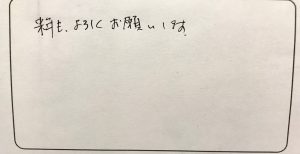 料も、よろしくお願いします